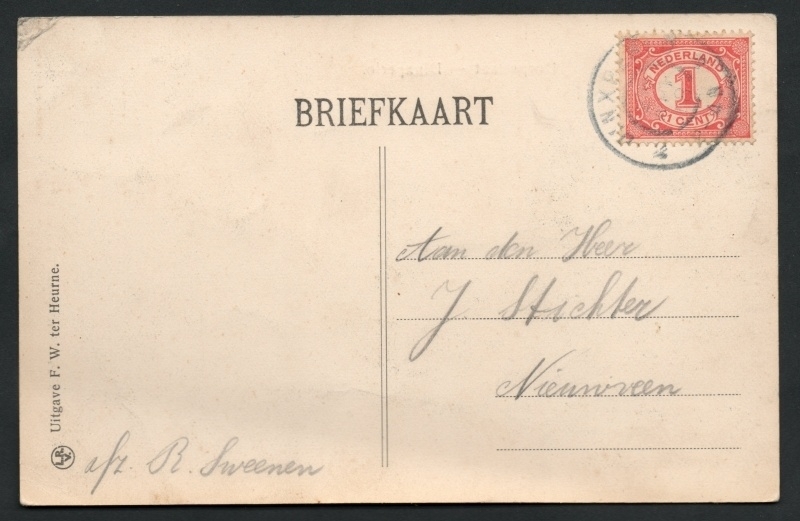 BRIEFKAART
NEDERLAND
1
1 CENT
Aan den Heer
J. Stichter
Nieuwveen
Uitgave F. W. ter Heurne.
L.R.
V.
afz. R. Sweenen